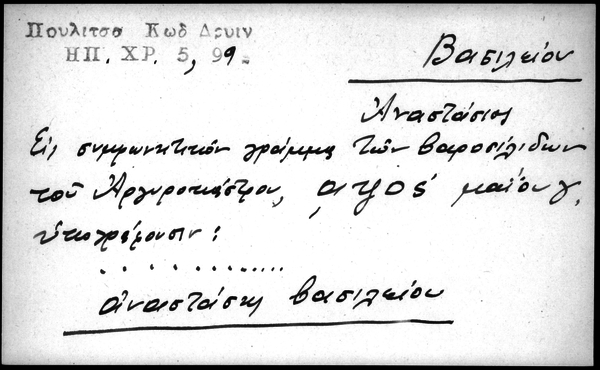 Πουλιτσα Κωδ Δρυιν
ΗΠ. ΧΡ. 5, 99.
Βασιλείου
Ἀναστάσιος
Εἰς συμφωνητικὸν γράμμα τῶν βαροσιλίδων
τοῦ Ἀργυροκάστρου, αψος μαΐου γ,
ὑπογράφουσιν:
. . . . . . . . . . . . .
ἀναστάση βασιλείου